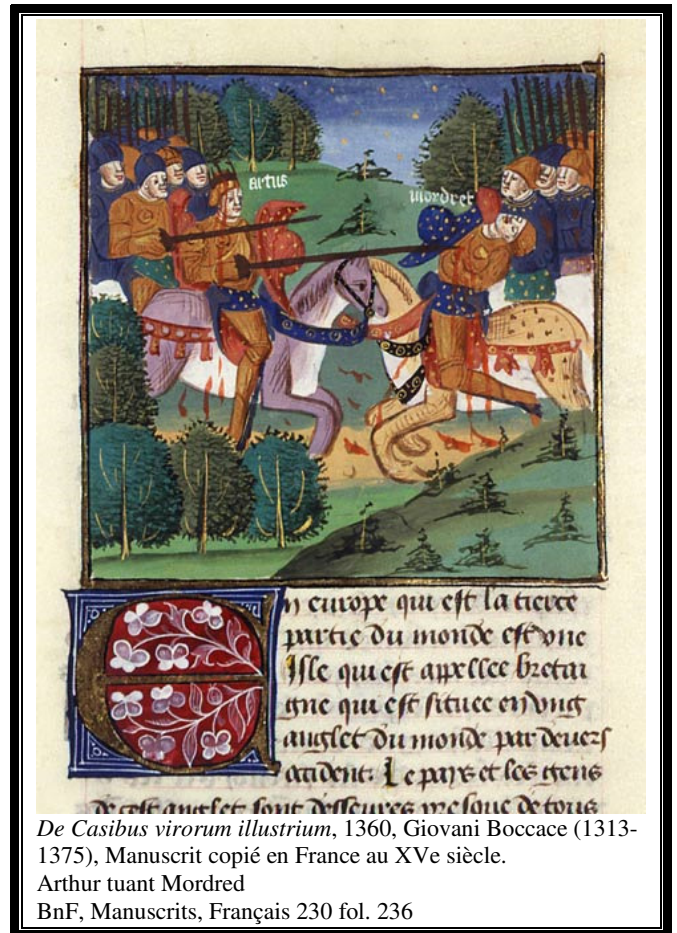 artus
mordret
En europe qui est la tierce
partie du monde est vne
Isle qui est appellee bretai
gne qui est situee en vng
anglet du monde par deuers
occident. Le pays et les gens
de cest anglet sont desseures presque de tous
De Casibus virorum illustrium, 1360, Giovani Boccace (1313-
1375), Manuscrit copié en France au XVe siècle.
Arthur tuant Mordred
BnF, Manuscrits, Français 230 fol. 236